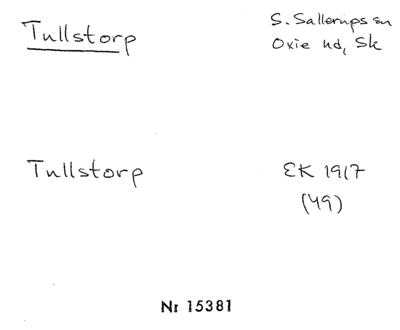 Tullstorp
S. Sallerups sn
Oxie hd, Sk
Tullstorp
EK 1917
(49)
Nr 15381